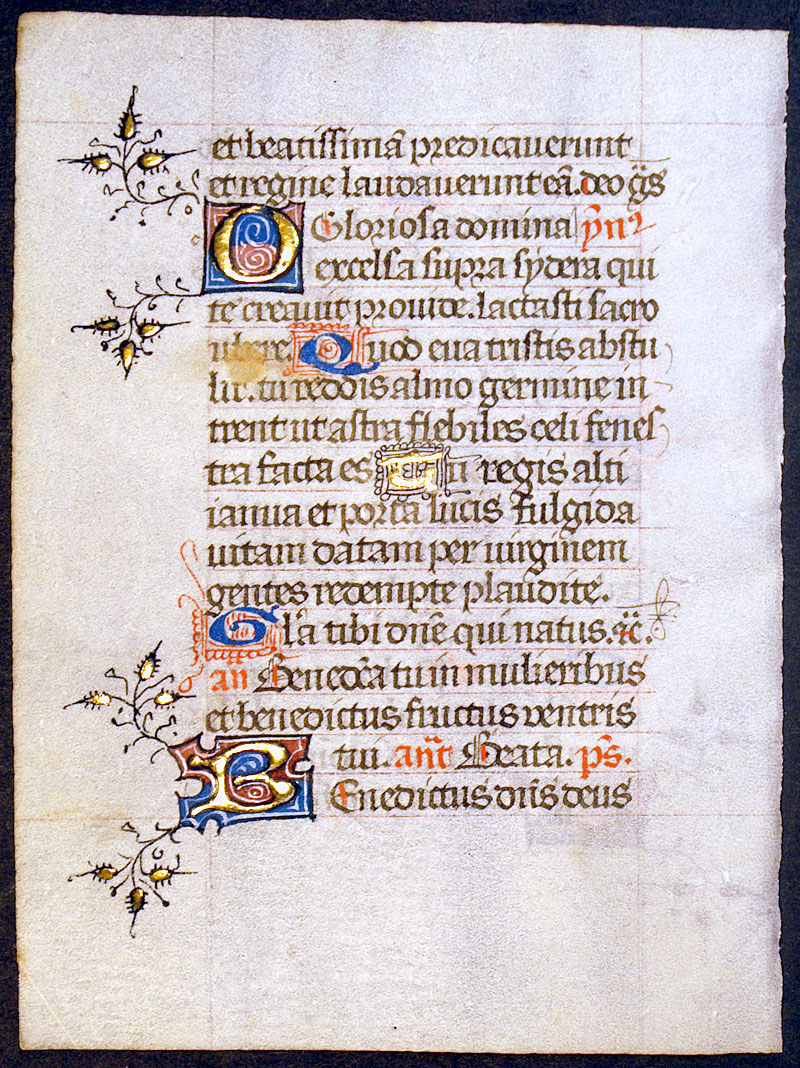 et beatissimā predicauerunt
et regine laudauerunt eā. deo gr̄s
O Gloriosa domina ỹnꝰ
excelsa supra sydera qui
te creauit prouide. lactasti sacro
ubere. Quod eua tristis abstu
lit. tu reddis almo germine in
trent ut astra flebiles celi fenes
tra facta es tu regis alti
ianua et porta lucis fulgida
uitam datam per uirginem
gentes redempte plaudite.
Gl'a tibi dn̄e qui natus. ⁊c̄.
an Benedc̄a tu in mulieribus
et benedictus fructus ventris
tui. ant̄ Beata. ps̄.
BEnedictus dn̄s deus